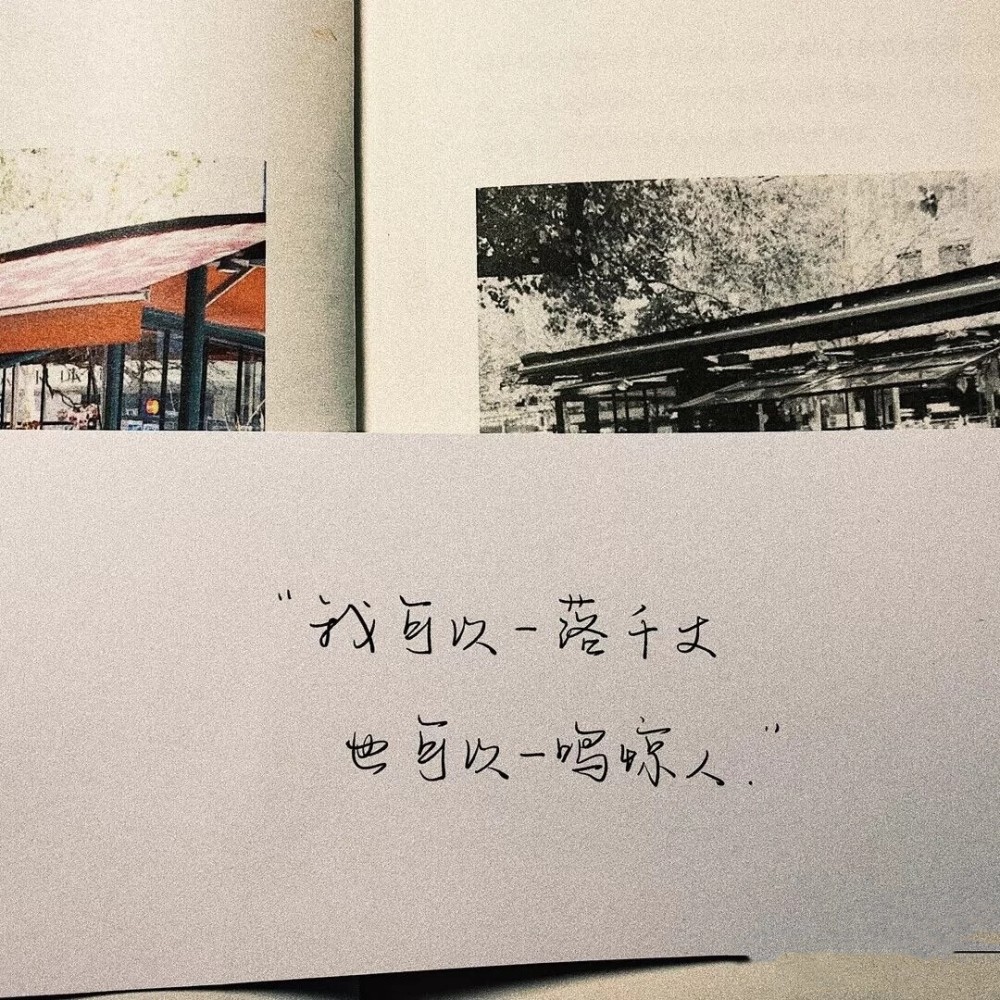 "我可以一落千丈
也可以一鸣惊人."